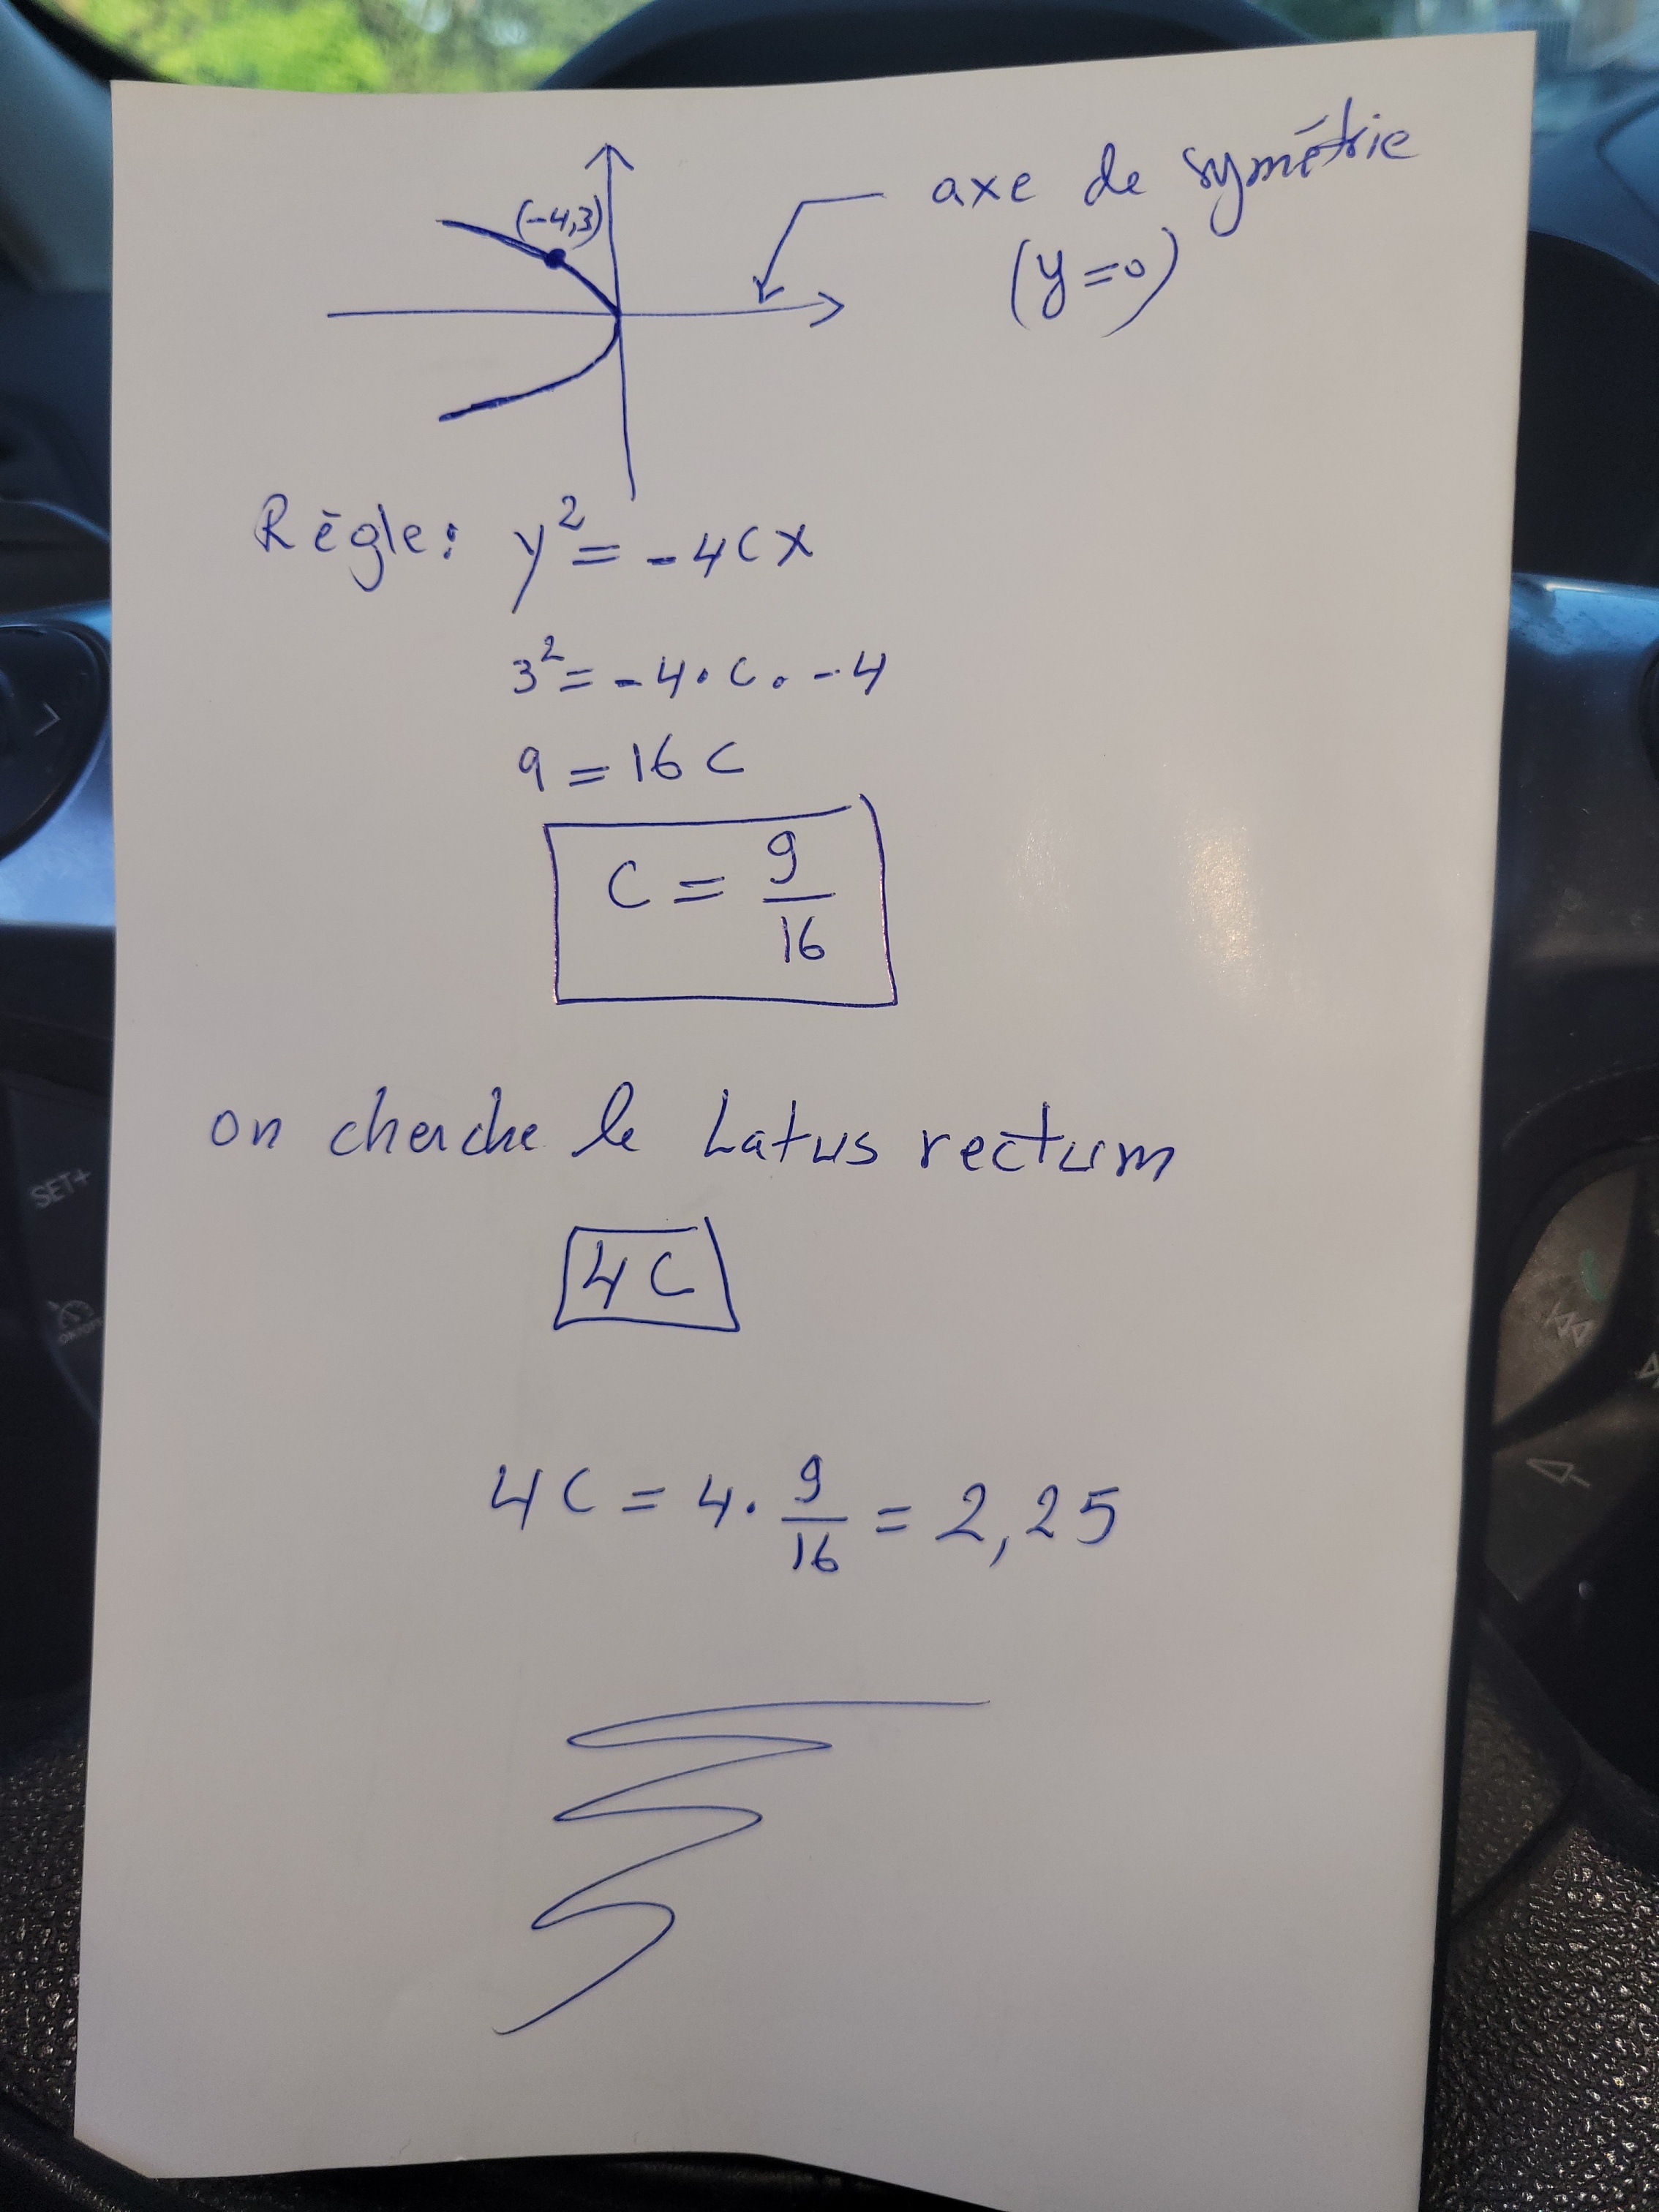 (-4,3)
axe de symétrie
(y=0)
Règle: y² = -4cx
3² = -4·c·-4
9 = 16c
c = 9/16
on cherche le Latus rectum
4c
4c = 4·9/16 = 2,25
SET+